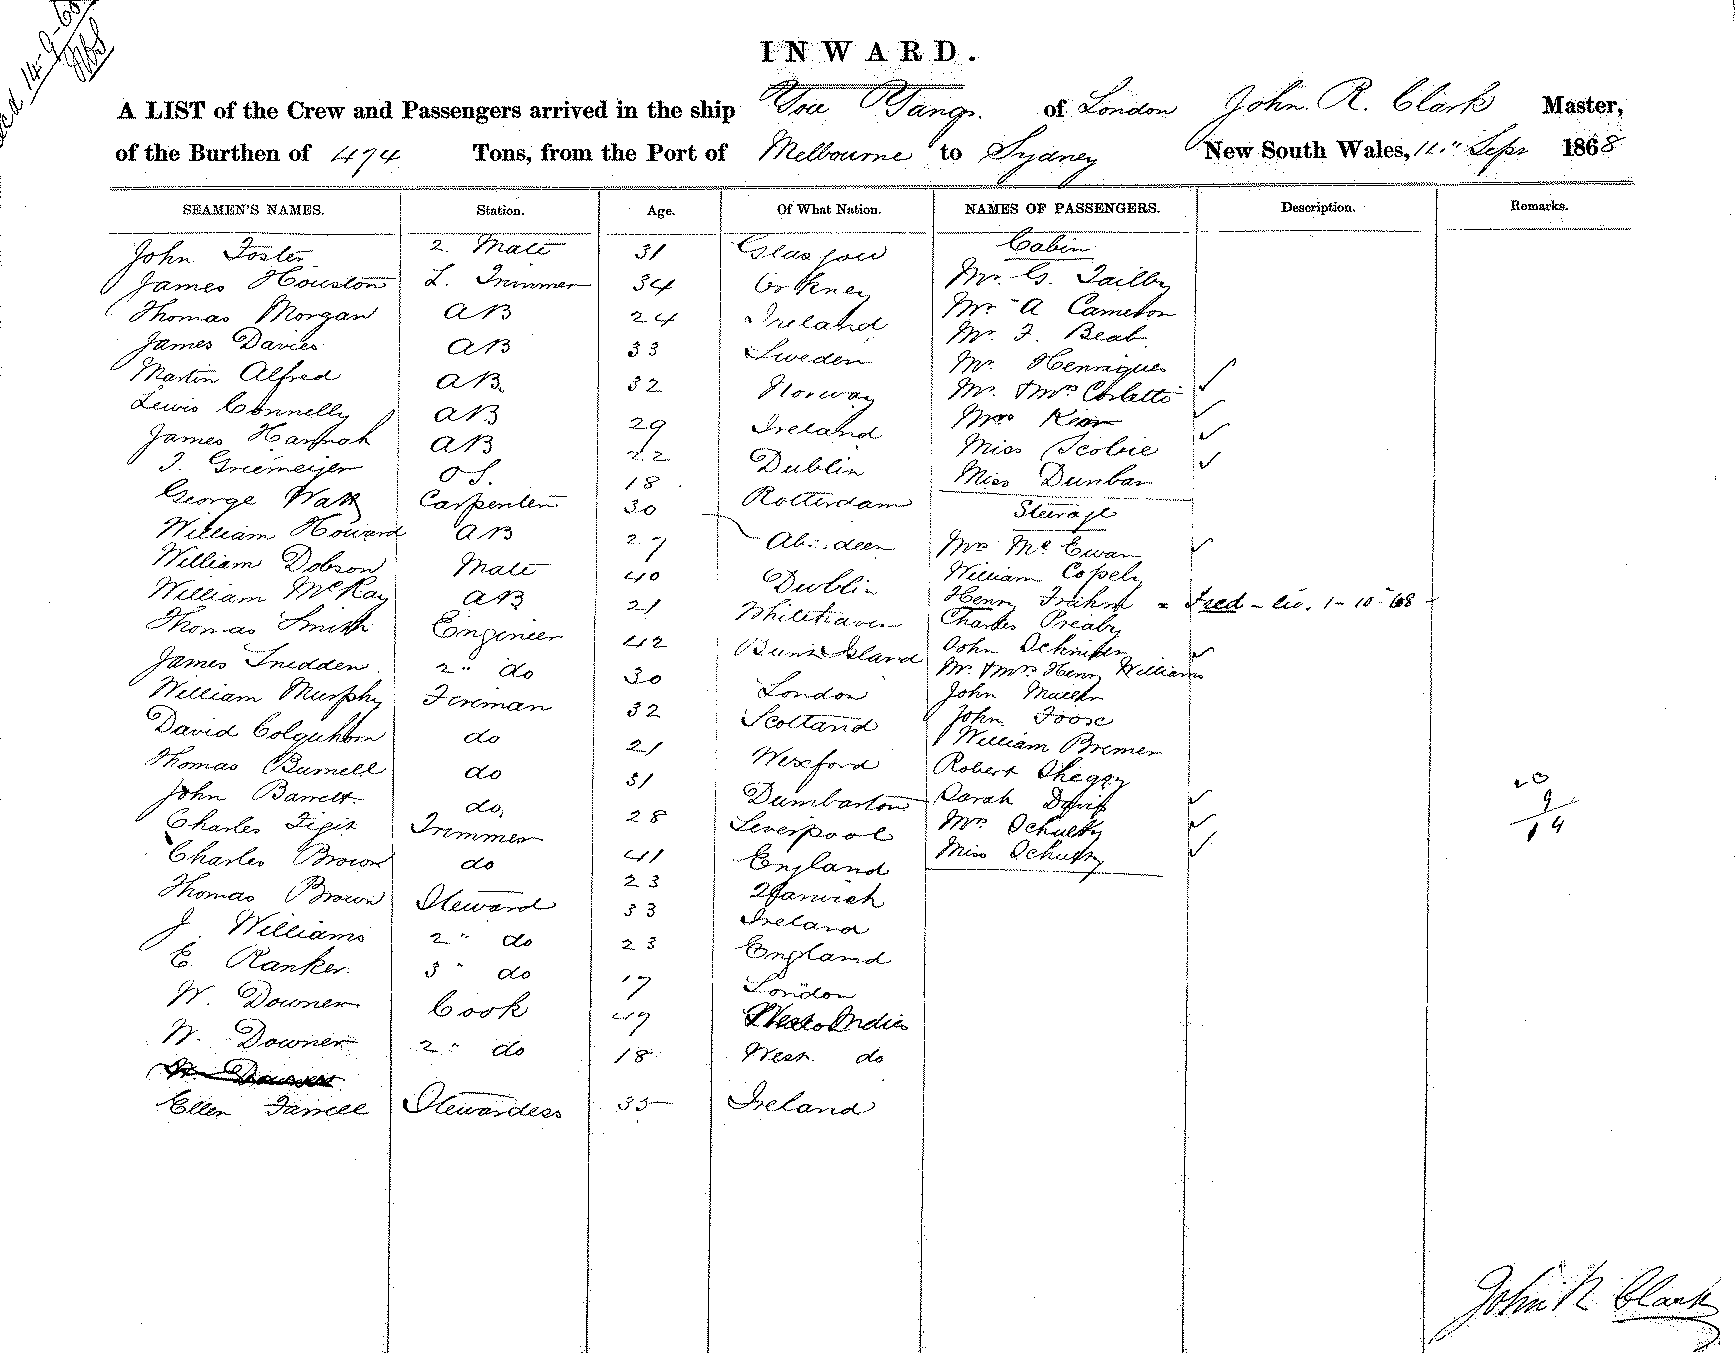 14-9-68
INWARD.
A LIST of the Crew and Passengers arrived in the ship You Yangs. of London John R. Clark Master,
of the Burthen of 474 Tons, from the Port of Melbourne to Sydney New South Wales, 11" Sepr 1868
SEAMEN'S NAMES. Station. Age. Of What Nation. NAMES OF PASSENGERS. Description. Remarks.
John Foster 2. Mate 31 Glasgow Cabin
James Houston L. Trimmer 34 Orkney Mr. G. Tailby
Thomas Morgan AB 24 Ireland Mr A Cameron
James Davies AB 33 Sweden Mr. F. Beab.
Martin Alfred AB. 32 Norway Mr. Henriques
Lewis Connelly AB 29 Ireland Mr. & Mrs Corletti
James Hannah AB 22 Dublin Mrs Kean
J. Griemeijer O S. 18 Rotterdam Miss Scobie
George Watt Carpenter 30 Aberdeen Miss Dunbar
Steerage
William Howard AB 27 Dublin Mrs McEwan
William Dobson Mate 40 Whitehaven William Copely
William McKay AB 21 Burnt Island Henry Frahm - Fred - liv. 1-10-68 -
Thomas Smith Engineer 42 London Charles Preaby
James Snedden 2" do 30 Scotland John
William Murphy Fireman 32 Wexford Mr. & Mrs. Henry Williams
David Colquhoun do 21 Dumbarton John Mullen
Thomas Burnell do 31 Liverpool John Foose
John Barrett do, 28 England William Bremer
Charles Figit Trimmer 41 Harwich Robert Shegog
Charles Brown do 23 Ireland Sarah Davis
Thomas Brown Steward 33 England Mrs. Schultz
J. Williams 2" do 23 London Miss Schultz
E. Ranker. 3" do 17 West Indies
W. Downer Cook 49 West. do
W. Downer 2" do 18
Ellen Farrell Stewardess 35 Ireland
20
9
14
John R Clark